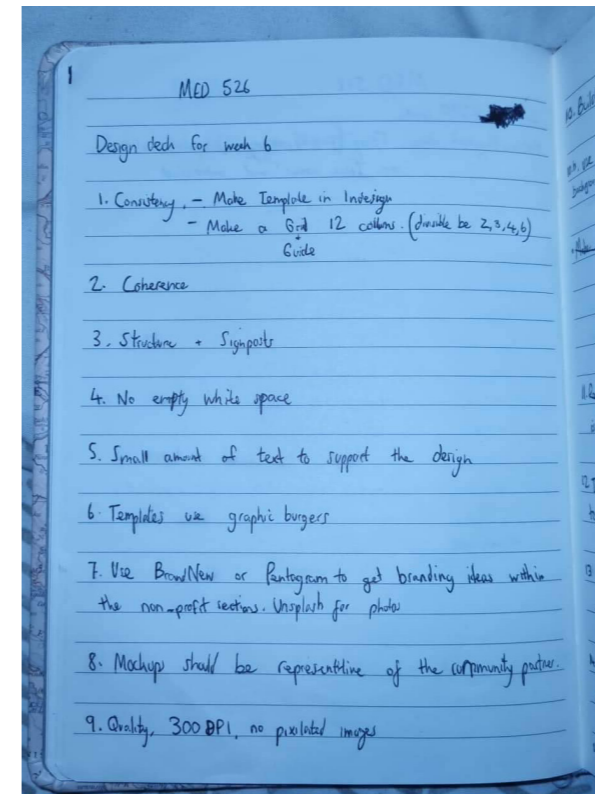 1
MED 526
Design deck for week 6
1. Consistency, - Make Template in Indesign
- Make a Grid 12 collums. (divisible be 2,3,4,6)
+
Guide
2. Coherence
3. Structure + Signposts
4. No empty white space
5. Small amount of text to support the design
6. Templates use graphic burgers
7. Use BrandNew or Pentagram to get branding ideas within
the non-profit sections. Unsplash for photos
8. Mockups should be representitive of the community partner.
9. Quality, 300 DPI, no pixilated images
10.
11.
12.
13